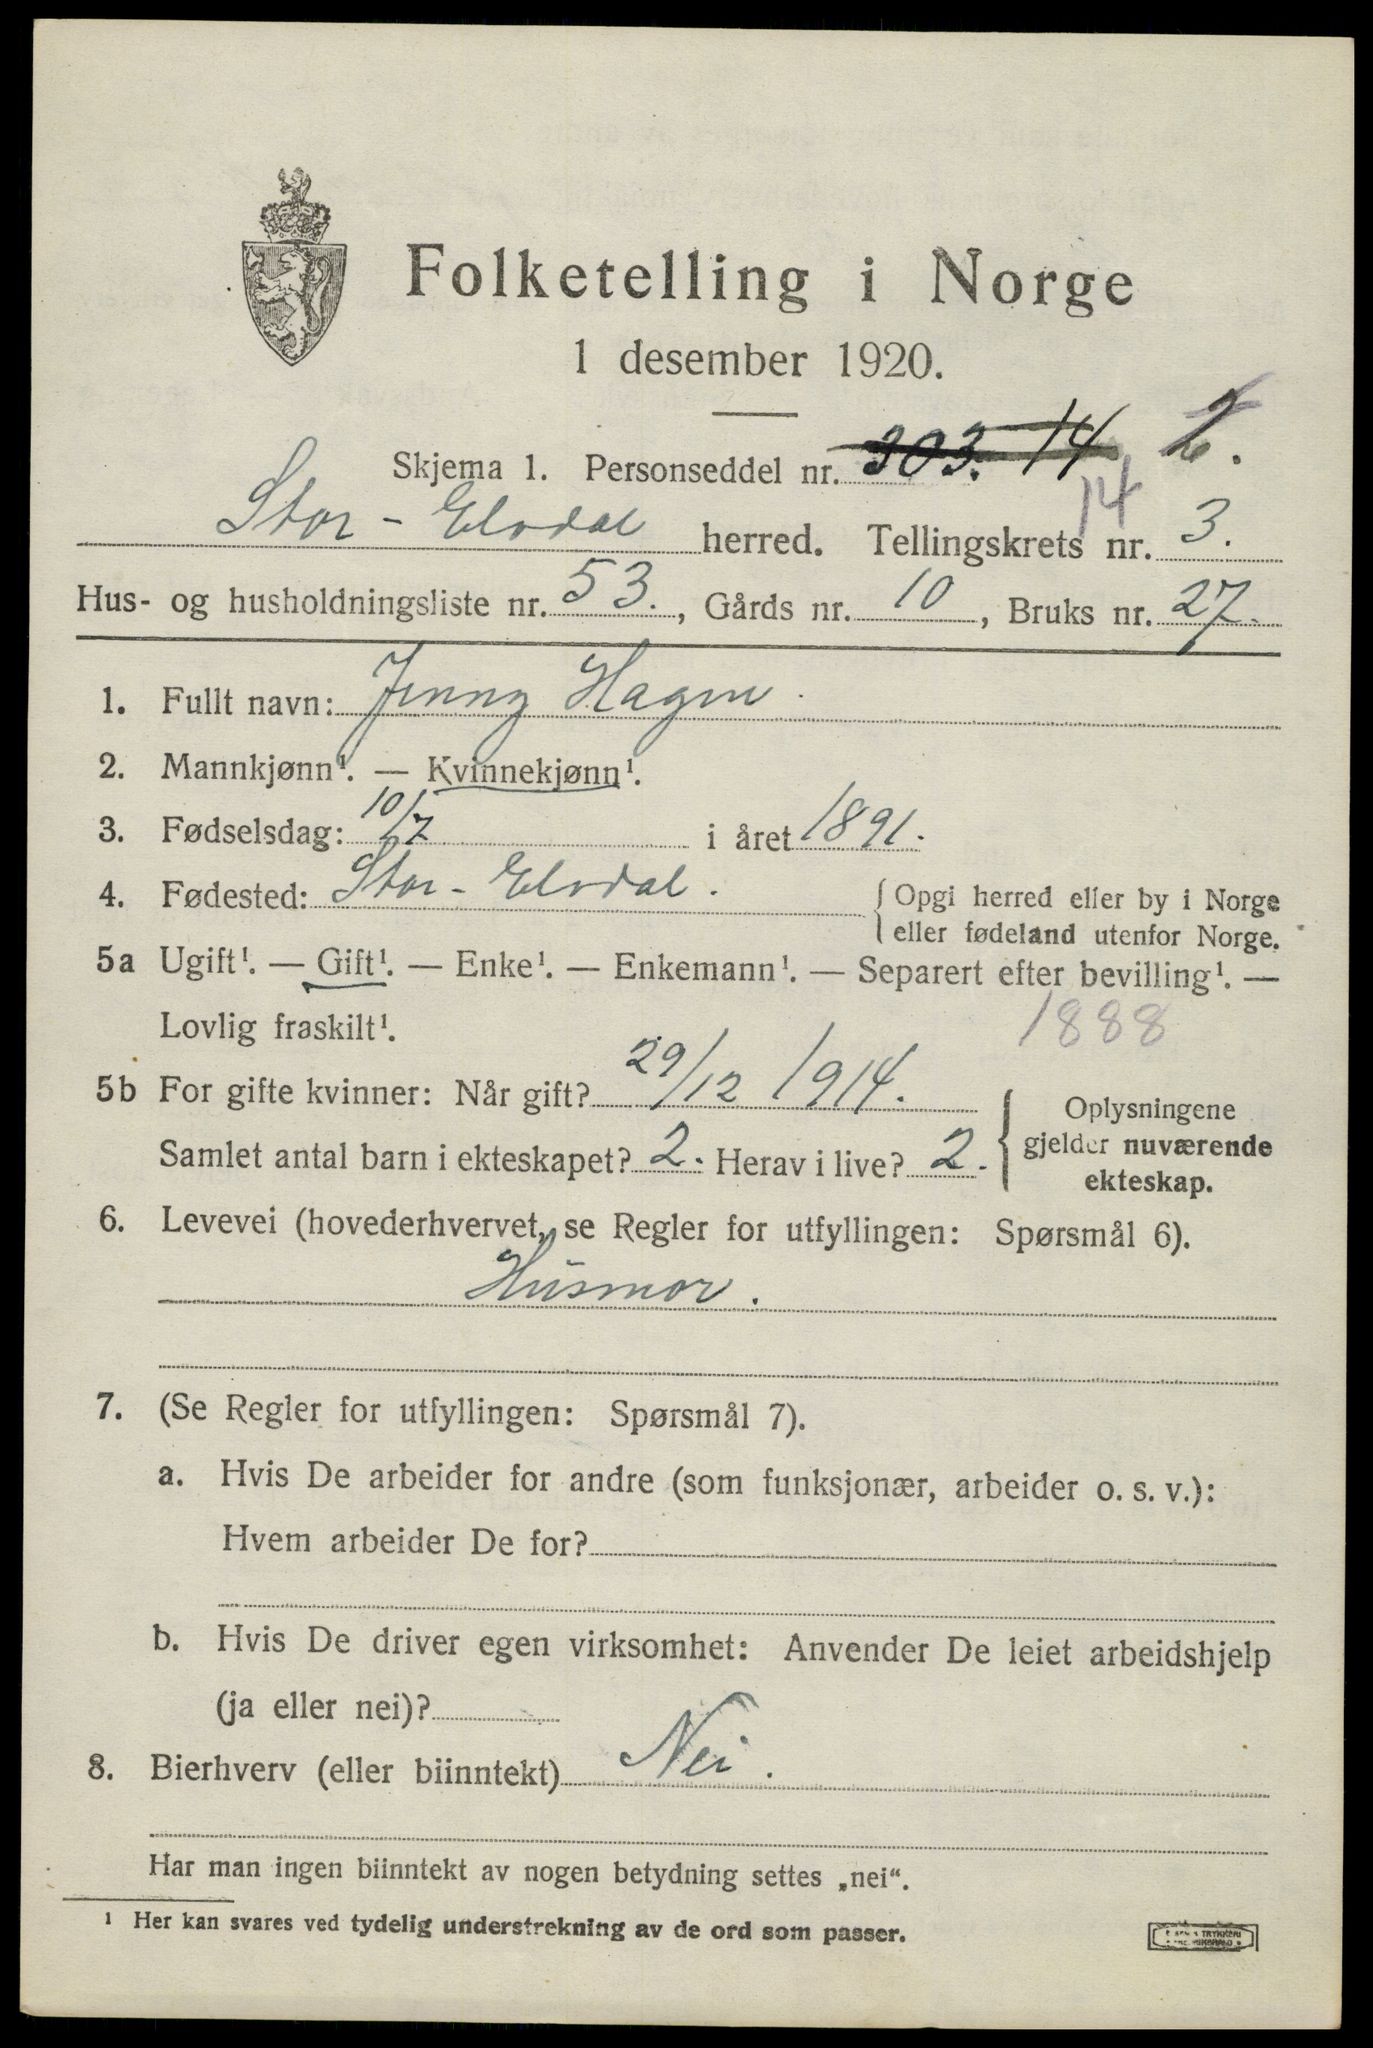 Folketelling i Norge
1 desember 1920.
Skjema 1. Personseddel nr. 303. 14 2.
14
Stor-Elvdal herred. Tellingskrets nr. 3.
Hus- og husholdningsliste nr. 53., Gårds nr. 10, Bruks nr. 27.
1. Fullt navn: Jenny Hagen
2. Mannkjønn¹. — Kvinnekjønn¹.
3. Fødselsdag: 10/7 i året 1891.
4. Fødested: Stor-Elvdal. { Opgi herred eller by i Norge
eller fødeland utenfor Norge.
5a Ugift¹. — Gift¹. — Enke¹. — Enkemann¹. — Separert efter bevilling¹. —
Lovlig fraskilt¹. 1888
5b For gifte kvinner: Når gift? 29/12 1914.
Samlet antal barn i ekteskapet? 2. Herav i live? 2.
{ Oplysningene
gjelder nuværende
ekteskap.
6. Levevei (hovederhvervet, se Regler for utfyllingen: Spørsmål 6).
Husmor.
7. (Se Regler for utfyllingen: Spørsmål 7).
a. Hvis De arbeider for andre (som funksjonær, arbeider o. s. v.):
Hvem arbeider De for?
b. Hvis De driver egen virksomhet: Anvender De leiet arbeidshjelp
(ja eller nei)?
8. Bierhverv (eller biinntekt) Nei.
Har man ingen biinntekt av nogen betydning settes „nei“.
¹ Her kan svares ved tydelig understrekning av de ord som passer.